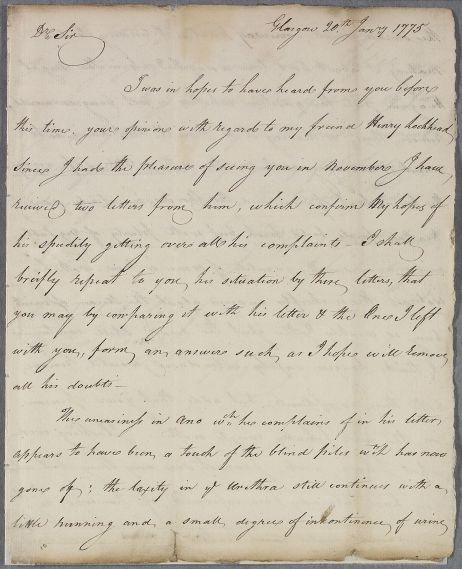 Glasgow 20th Jany 1775
Dr Sir
I was in hopes to have heard from you before
this time, your opinion with regard to my friend Henry Lochhead,
since I had the pleasure of seeing you in November I have
received two letters from him, which confirm My hopes of
his speedily getting over all his complaints – I shall
briefly repeat to you his situation by these letters, that
you may by comparing it with his letter & the One I left
with you, form an answer such as I hope will remove
all his doubts –
The uneasiness in ano wch he complains of in his letter
appears to have been a touch of the blind piles wch has now
gone off; the laxity in ye Urethra still continues with a
little running and a small degree of incontinence of urine